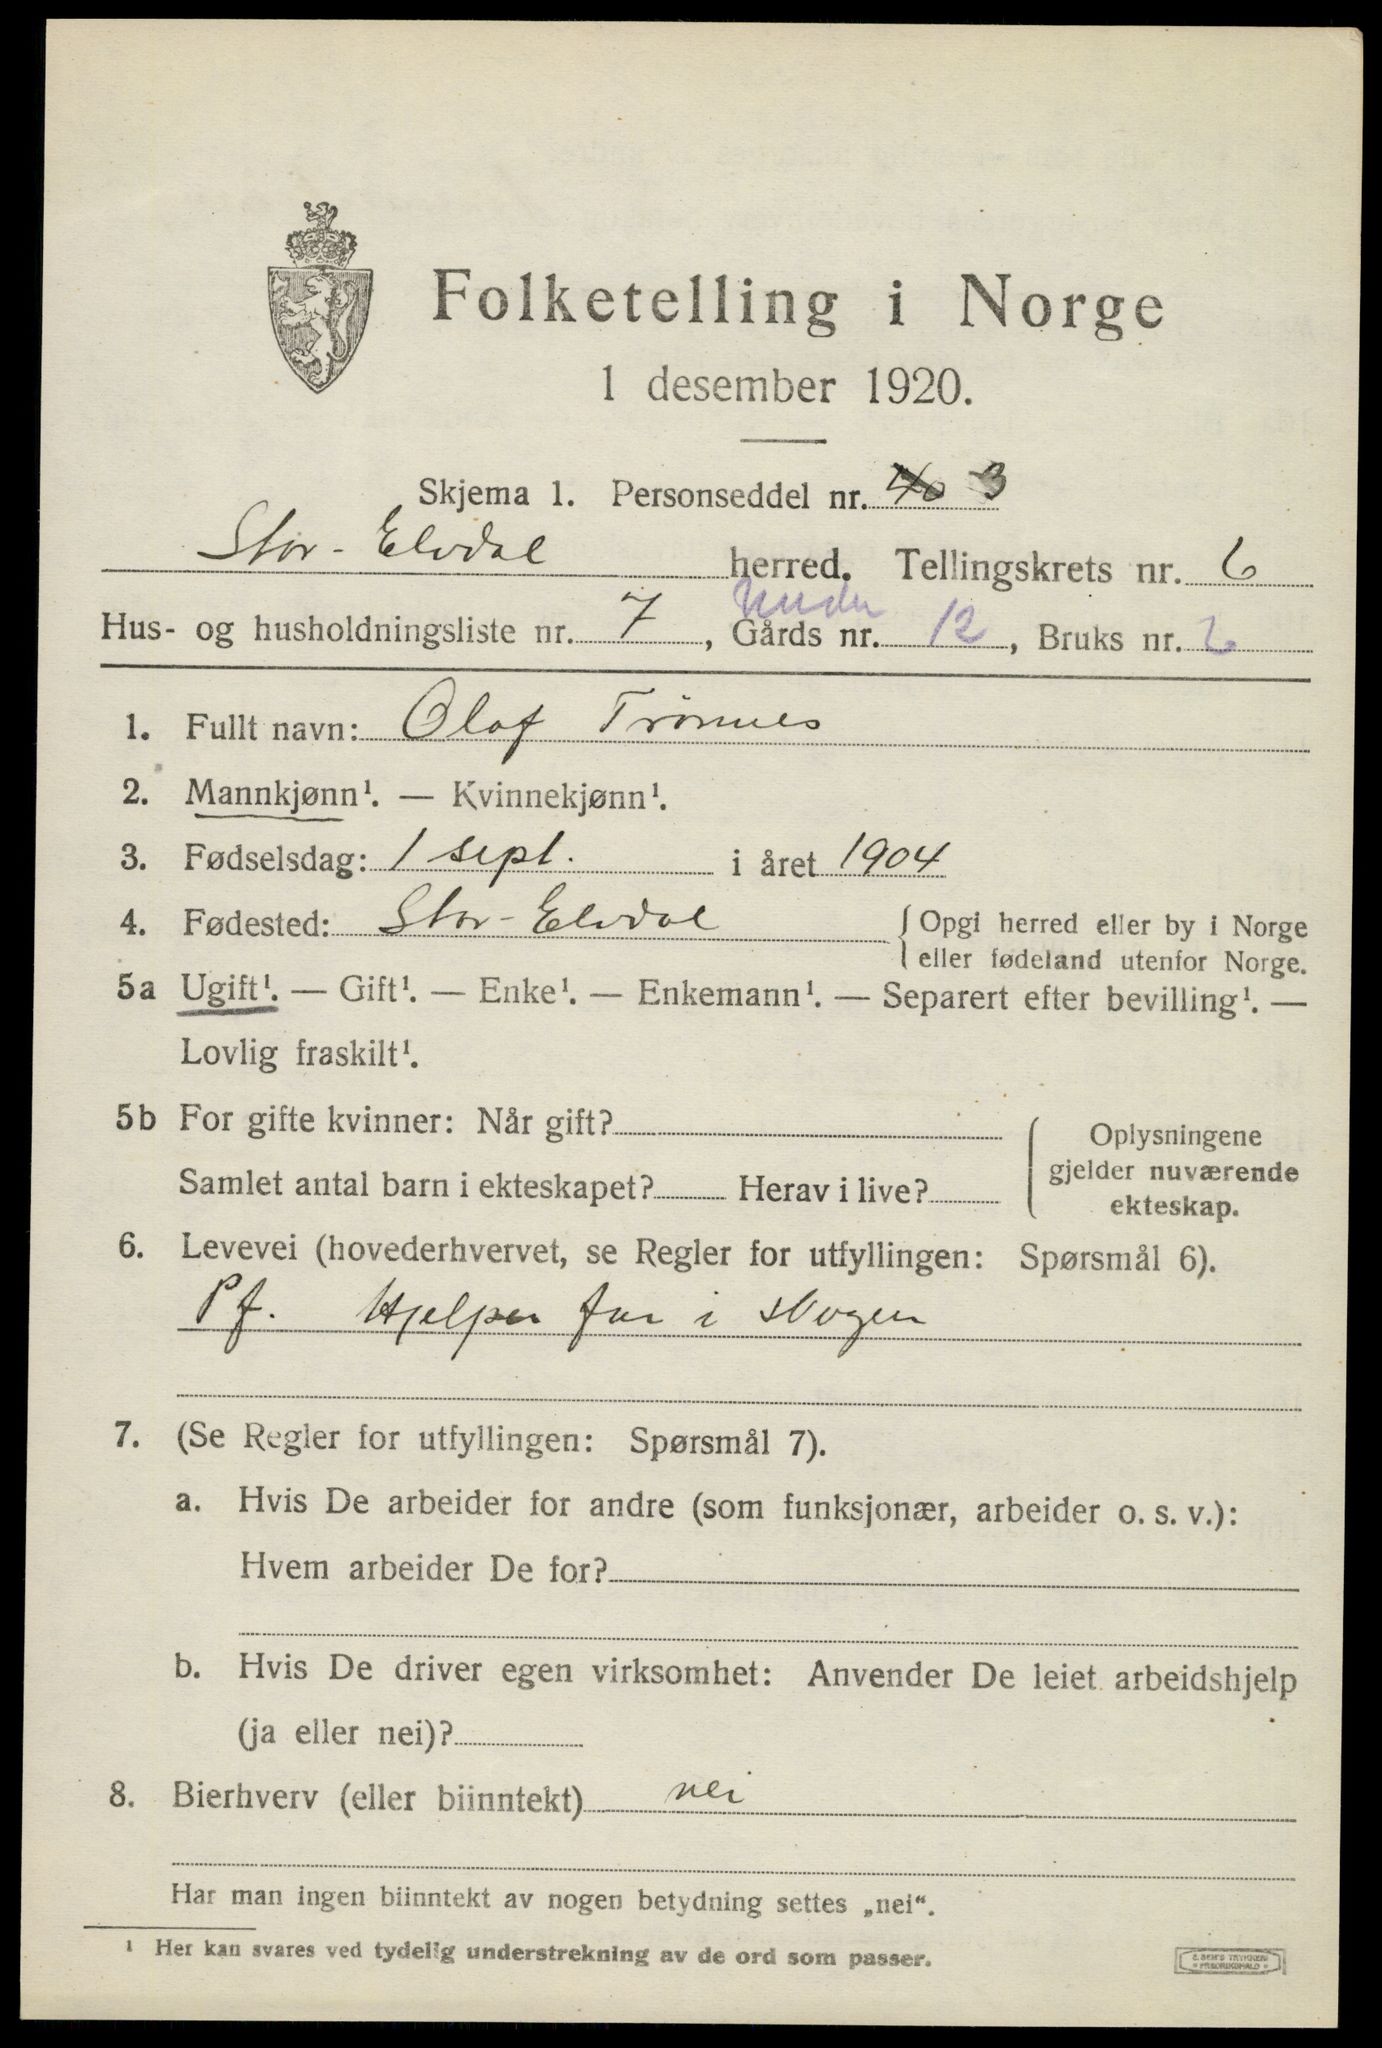 Folketelling i Norge
1 desember 1920.
Skjema 1. Personseddel nr. 40 3
Stor-Elvdal herred. Tellingskrets nr. 6
Under
Hus- og husholdningsliste nr. 7, Gårds nr. 12, Bruks nr. 6
1. Fullt navn: Olaf Trønnes
2. Mannkjønn¹. — Kvinnekjønn¹.
3. Fødselsdag: 1 sept. i året 1904
4. Fødested: Stor-Elvdal { Opgi herred eller by i Norge
eller fødeland utenfor Norge.
5a Ugift¹. — Gift¹. — Enke¹. — Enkemann¹. — Separert efter bevilling¹. —
Lovlig fraskilt¹.
5b For gifte kvinner: Når gift?
Samlet antal barn i ekteskapet? Herav i live?
Oplysningene
gjelder nuværende
ekteskap.
6. Levevei (hovederhvervet, se Regler for utfyllingen: Spørsmål 6).
Pf. Hjelper far i skogen
7. (Se Regler for utfyllingen: Spørsmål 7).
a. Hvis De arbeider for andre (som funksjonær, arbeider o. s. v.):
Hvem arbeider De for?
b. Hvis De driver egen virksomhet: Anvender De leiet arbeidshjelp
(ja eller nei)?
8. Bierhverv (eller biinntekt) nei
Har man ingen biinntekt av nogen betydning settes „nei“.
¹ Her kan svares ved tydelig understrekning av de ord som passer.